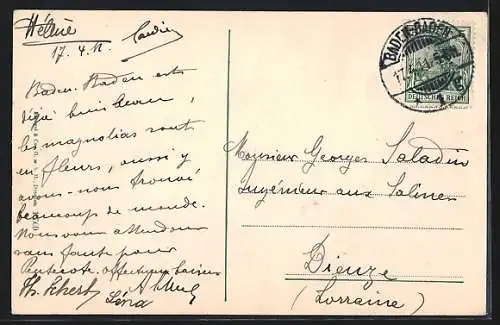 Hélène
17. 4. 11.
Baden-Baden est
déjà bien beau,
les magnolias sont
en fleurs, aussi y
avons-nous trouvé
beaucoup de monde.
Nous vous attendons
sans faute pour
Pentecôte. affectueux baisers
Lina
BADEN-BADEN
17
DEUTSCHES REICH
Monsieur Georges Saladin
Ingénieur aux Salines
Dieuze
(Lorraine)